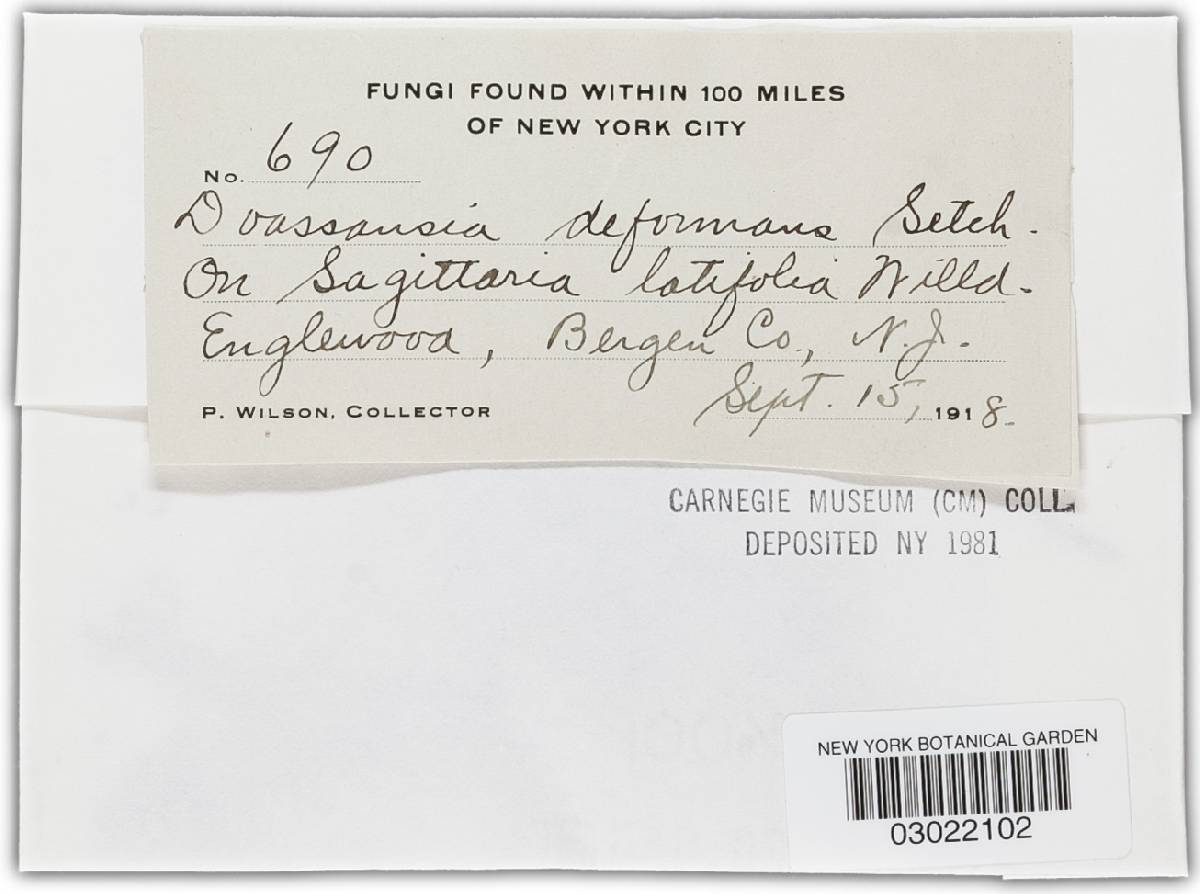 FUNGI FOUND WITHIN 100 MILES
OF NEW YORK CITY
No. 690
Doassansia deformans Setch.
On Sagittaria latifolia Willd.
Englewood, Bergen Co., N.J.
P. WILSON, COLLECTOR Sept. 15, 1918.
CARNEGIE MUSEUM (CM) COLL.
DEPOSITED NY 1981
NEW YORK BOTANICAL GARDEN
03022102